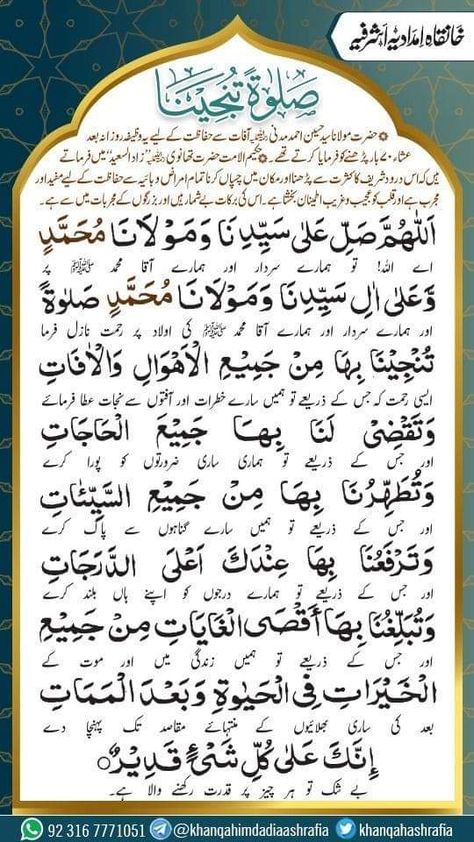 خانقاہ اِمدادیہ اَشرفیہ
صلوٰۃ تُنجینا
حضرت مولانا سید حسین احمد مدنی آفات سے حفاظت کے لیے یہ وظیفہ روزانہ بعد
عشاء ۷۰ بار پڑھنے کو فرمایا کرتے تھے۔ حکیم الامت حضرت تھانوی "زاد السعید" میں فرماتے
ہیں کہ اس درود شریف کا کثرت سے پڑھنا اور مکان میں چسپاں کرنا تمام امراضِ وبائیہ سے حفاظت کے لیے مفید اور
مجرب ہے اور قلب کو عجیب و غریب اطمینان بخشتا ہے۔ اس کی برکات بے شمار ہیں اور بزرگوں کے مجربات میں سے ہے۔
اَللّٰهُمَّ صَلِّ عَلٰى سَيِّدِنَا وَمَوْلَانَا مُحَمَّدٍ
اے اللہ! تو ہمارے سردار اور ہمارے آقا محمد ﷺ پر
وَّعَلٰى اٰلِ سَيِّدِنَا وَمَوْلَانَا مُحَمَّدٍ صَلٰوةً
اور ہمارے سردار اور ہمارے آقا محمد ﷺ کی اولاد پر رحمت نازل فرما
تُنْجِيْنَا بِهَا مِنْ جَمِيْعِ الْاَهْوَالِ وَالْاٰفَاتِ
ایسی رحمت کہ جس کے ذریعے تو ہمیں سارے خطرات اور آفتوں سے نجات عطا فرمائے
وَتَقْضِىْ لَنَا بِهَا جَمِيْعَ الْحَاجَاتِ
اور جس کے ذریعے تو ہماری ساری ضرورتوں کو پورا کرے
وَتُطَهِّرُنَا بِهَا مِنْ جَمِيْعِ السَّيِّئَاتِ
اور جس کے ذریعے تو ہمیں سارے گناہوں سے پاک کرے
وَتَرْفَعُنَا بِهَا عِنْدَكَ اَعْلَى الدَّرَجَاتِ
اور جس کے ذریعے تو ہمارے درجوں کو اپنے ہاں بلند کرے
وَتُبَلِّغُنَا بِهَا اَقْصَى الْغَايَاتِ مِنْ جَمِيْعِ
اور جس کے ذریعے تو ہمیں زندگی میں اور موت کے
الْخَيْرَاتِ فِى الْحَيٰوةِ وَبَعْدَ الْمَمَاتِ
بعد کی ساری بھلائیوں کے منتہائے مقاصد تک پہنچا دے
اِنَّكَ عَلٰى كُلِّ شَىْءٍ قَدِيْرٌ
بے شک تو ہر چیز پر قدرت رکھنے والا ہے۔
92 316 7771051 @khanqahimdadiaashrafia khanqahashrafia